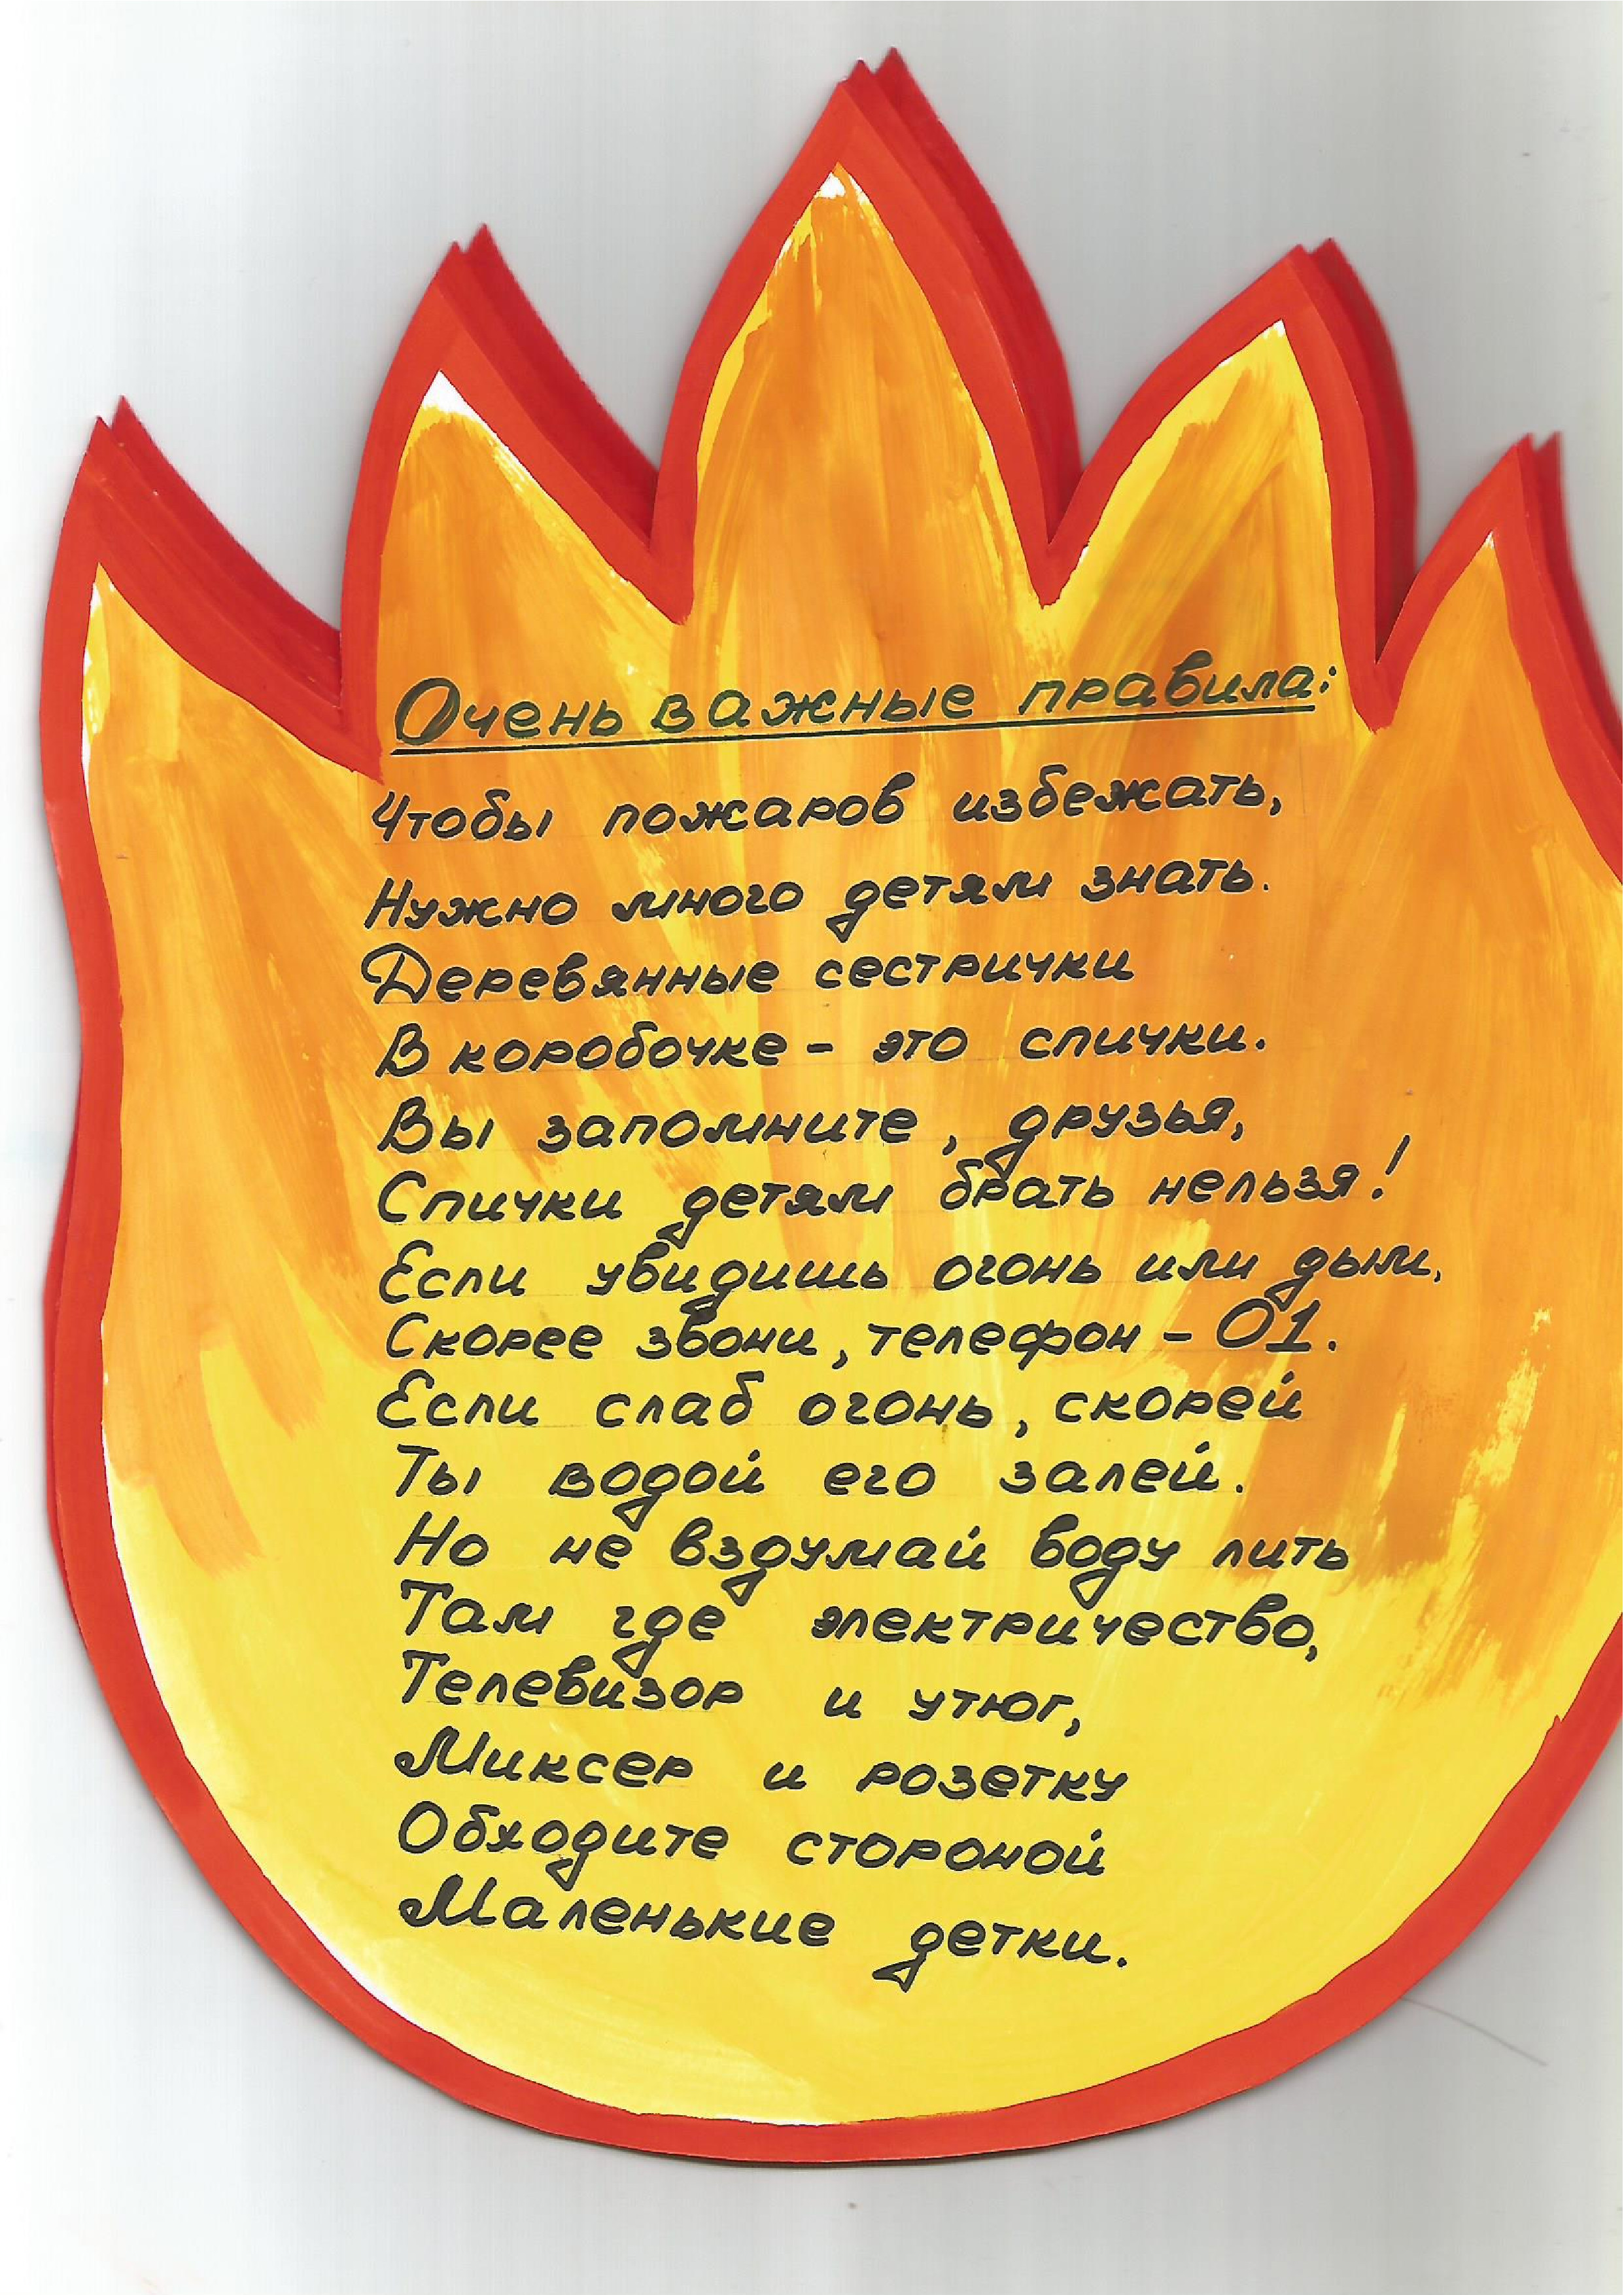 Очень важные правила:
Чтобы пожаров избежать,
Нужно много детям знать.
Деревянные сестрички
В коробочке - это спички.
Вы запомните, друзья,
Спички детям брать нельзя!
Если увидишь огонь или дым,
Скорее звони, телефон - 01.
Если слаб огонь, скорей
Ты водой его залей.
Но не вздумай воду лить
Там где электричество,
Телевизор и утюг,
Миксер и розетку
Обходите стороной
Маленькие детки.